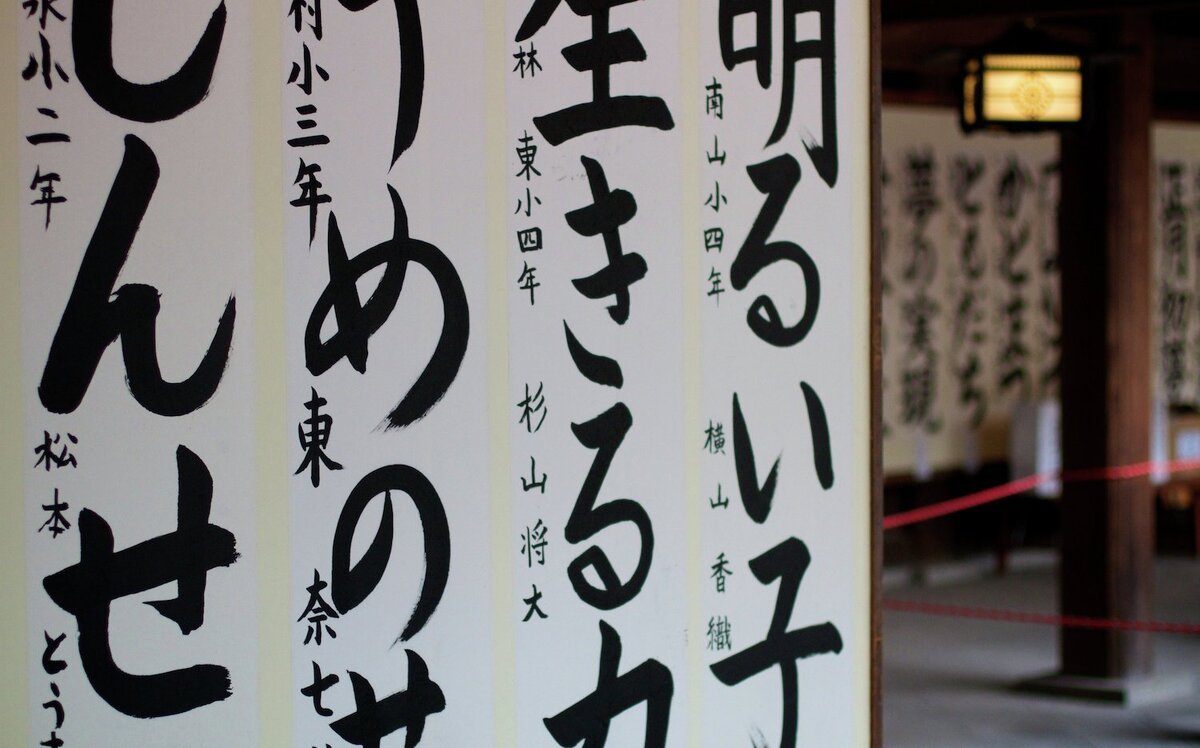 明るい子
南山小四年 横山香織
生きる力
林東小四年 杉山将大
うめのせ
村小三年 東奈七
しんせ
永小二年 松本とう
正月
かどまつ
ともだち
夢の実現